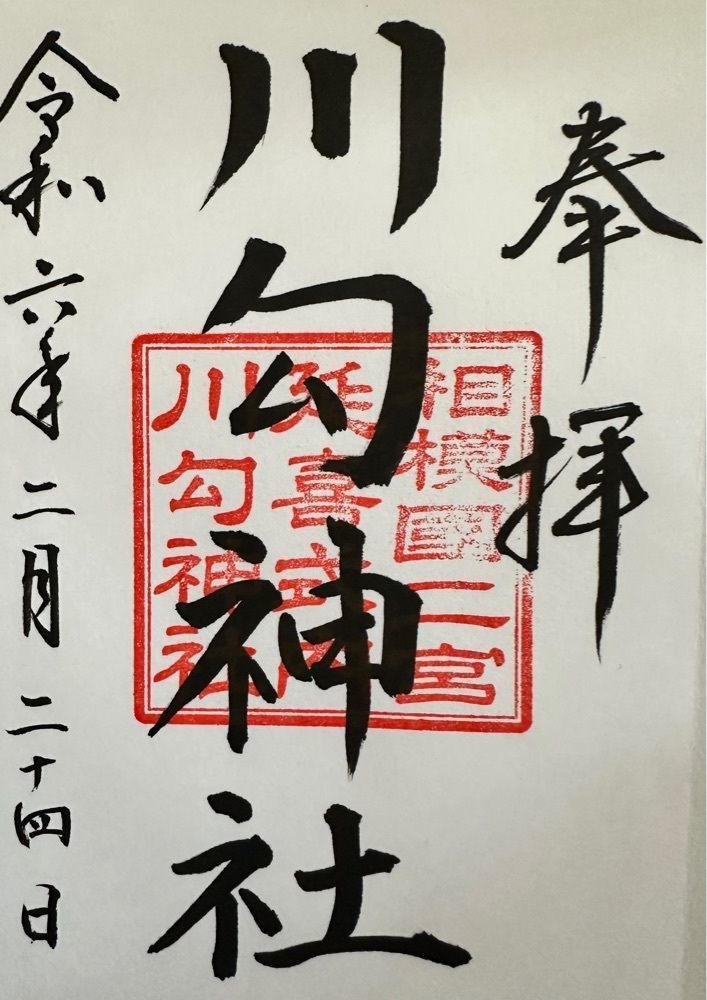 奉拝
相模國二宮
延喜式内
川勾神社
川勾神社
令和六年二月二十四日